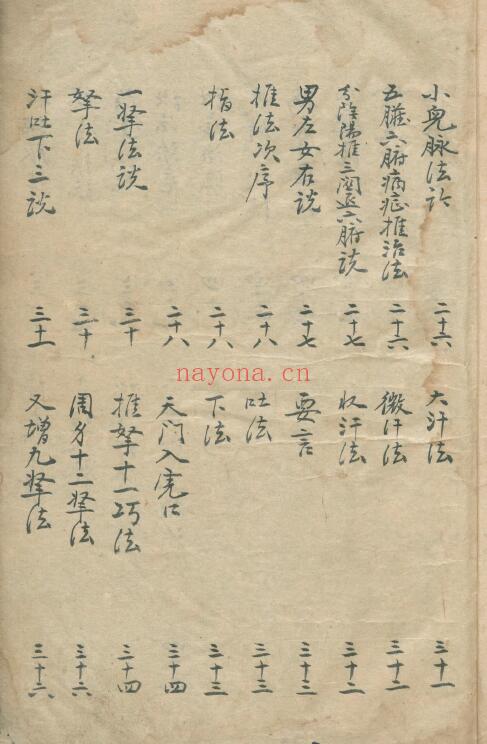 小兒脉法论 二十六
五臟六腑病症推治法 二十六
分陰陽推三関退六腑说 二十七
男左女右说 二十七
推法次序 二十八
指法 二十八
一拏法説 三十
拏法 三十
汗吐下三説 三十一
大汗法 三十一
微汗法 三十二
收汗法 三十二
要言 三十三
吐法 三十三
下法 三十三
天门入虎口 三十四
推拏十一巧法 三十四
周身十二拏法 三十六
又增九拏法 三十六
nayona.cn